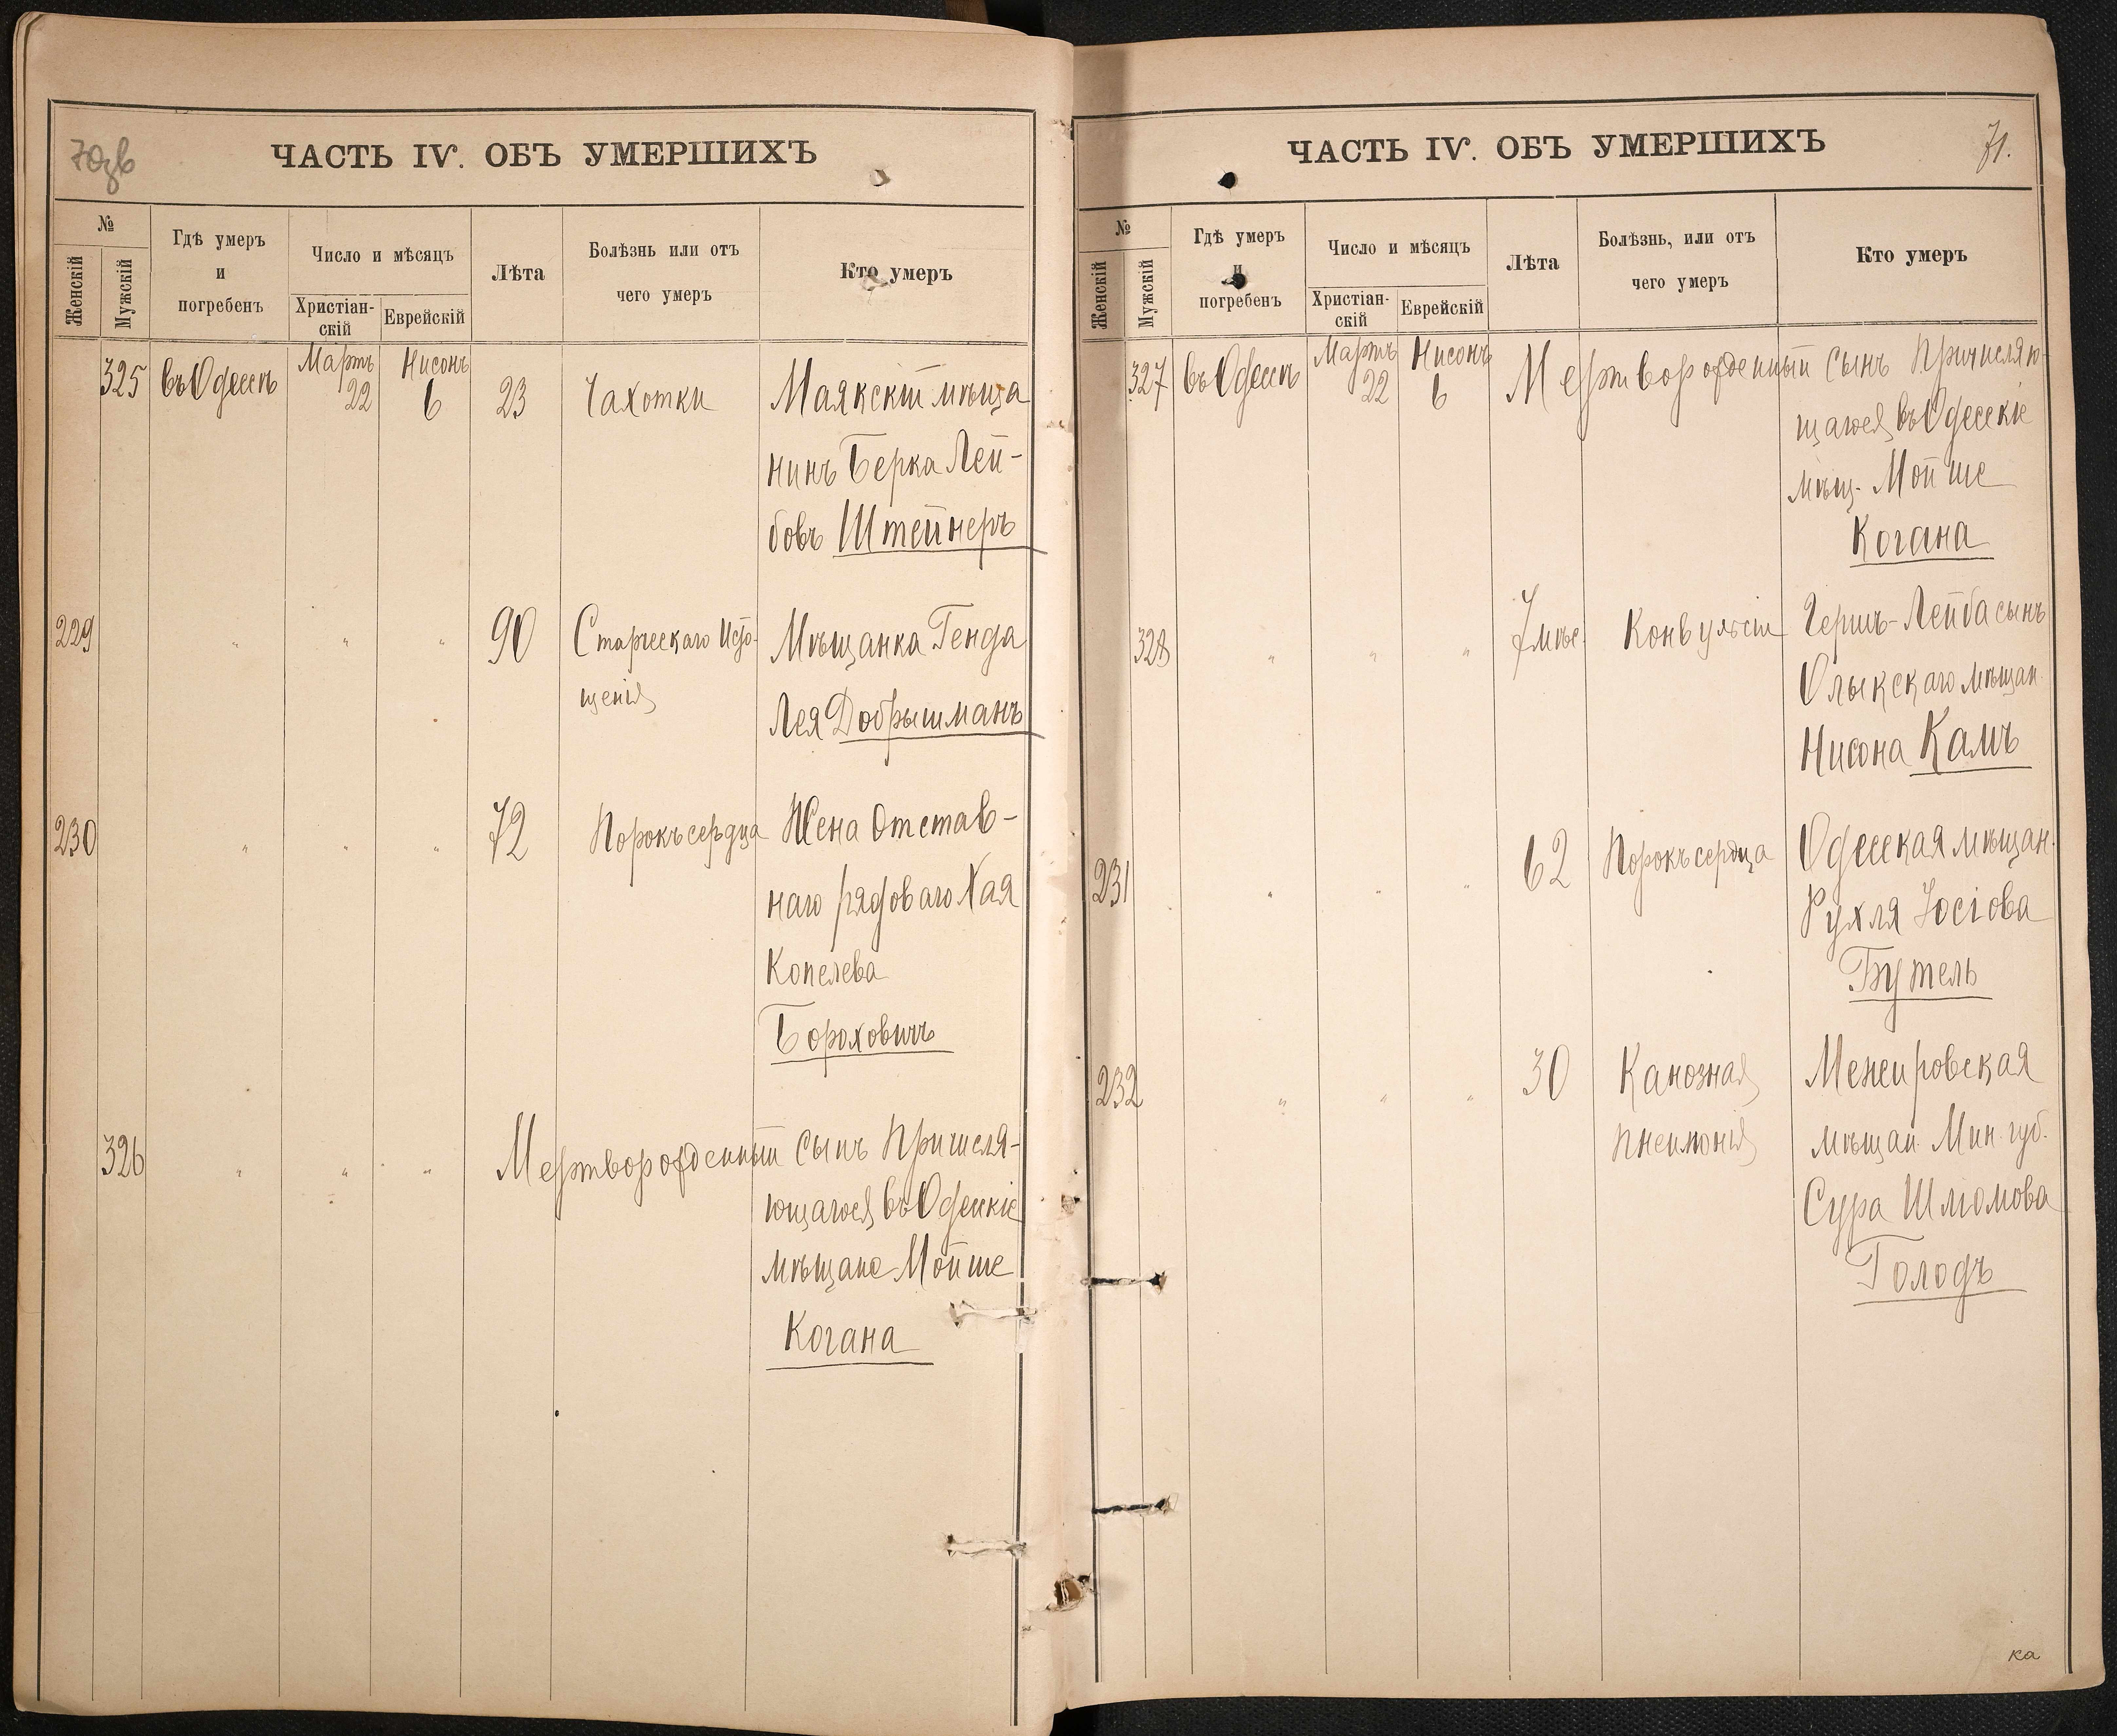 70зв
ЧАСТЬ IV. ОБЪ УМЕРШИХЪ
№
Женскій
Мужскій
Гдѣ умеръ
и
погребенъ
Число и мѣсяцъ
Христіан-
скій
Еврейскій
Лѣта
Болѣзнь или отъ
чего умеръ
Кто умеръ
325 въ Одессѣ Мартъ 22 Нисонъ 6 23 Чахотки Маякскій мѣща
нинъ Берка Лей-
бовъ Штейнеръ
229 " " " 90 Старческаго Исто- Мѣщанка Генда
щенія Лея Добрышманъ
230 " " " 72 Порокъ сердца Жена Отстав-
наго рядоваго Хая
Копелева
Бороховичъ
326 " " " Мертворожденный сынъ Причисля-
ющагося въ Одесскіе
мѣщане Мойше
Когана
71.
ЧАСТЬ IV. ОБЪ УМЕРШИХЪ
№
Женскій
Мужскій
Гдѣ умеръ
и
погребенъ
Число и мѣсяцъ
Христіан-
скій
Еврейскій
Лѣта
Болѣзнь, или отъ
чего умеръ
Кто умеръ
327 въ Одессѣ Мартъ 22 Нисонъ 6 Мертворожденный сынъ Причисляю-
щагося въ Одесскіе
мѣщ. Мойше
Когана
328 " " " 7 мѣс. Конвульсіи Гершъ-Лейба сынъ
Олыкскаго мѣщан.
Нисона Камъ
231 " " " 62 Порокъ сердца Одесская мѣщан.
Рухля Іосіова
Бутель
232 " " " 30 Каноозная Межировская
Пнеимонія мѣщан. Мин. губ.
Сура Шломова
Голодъ
ка